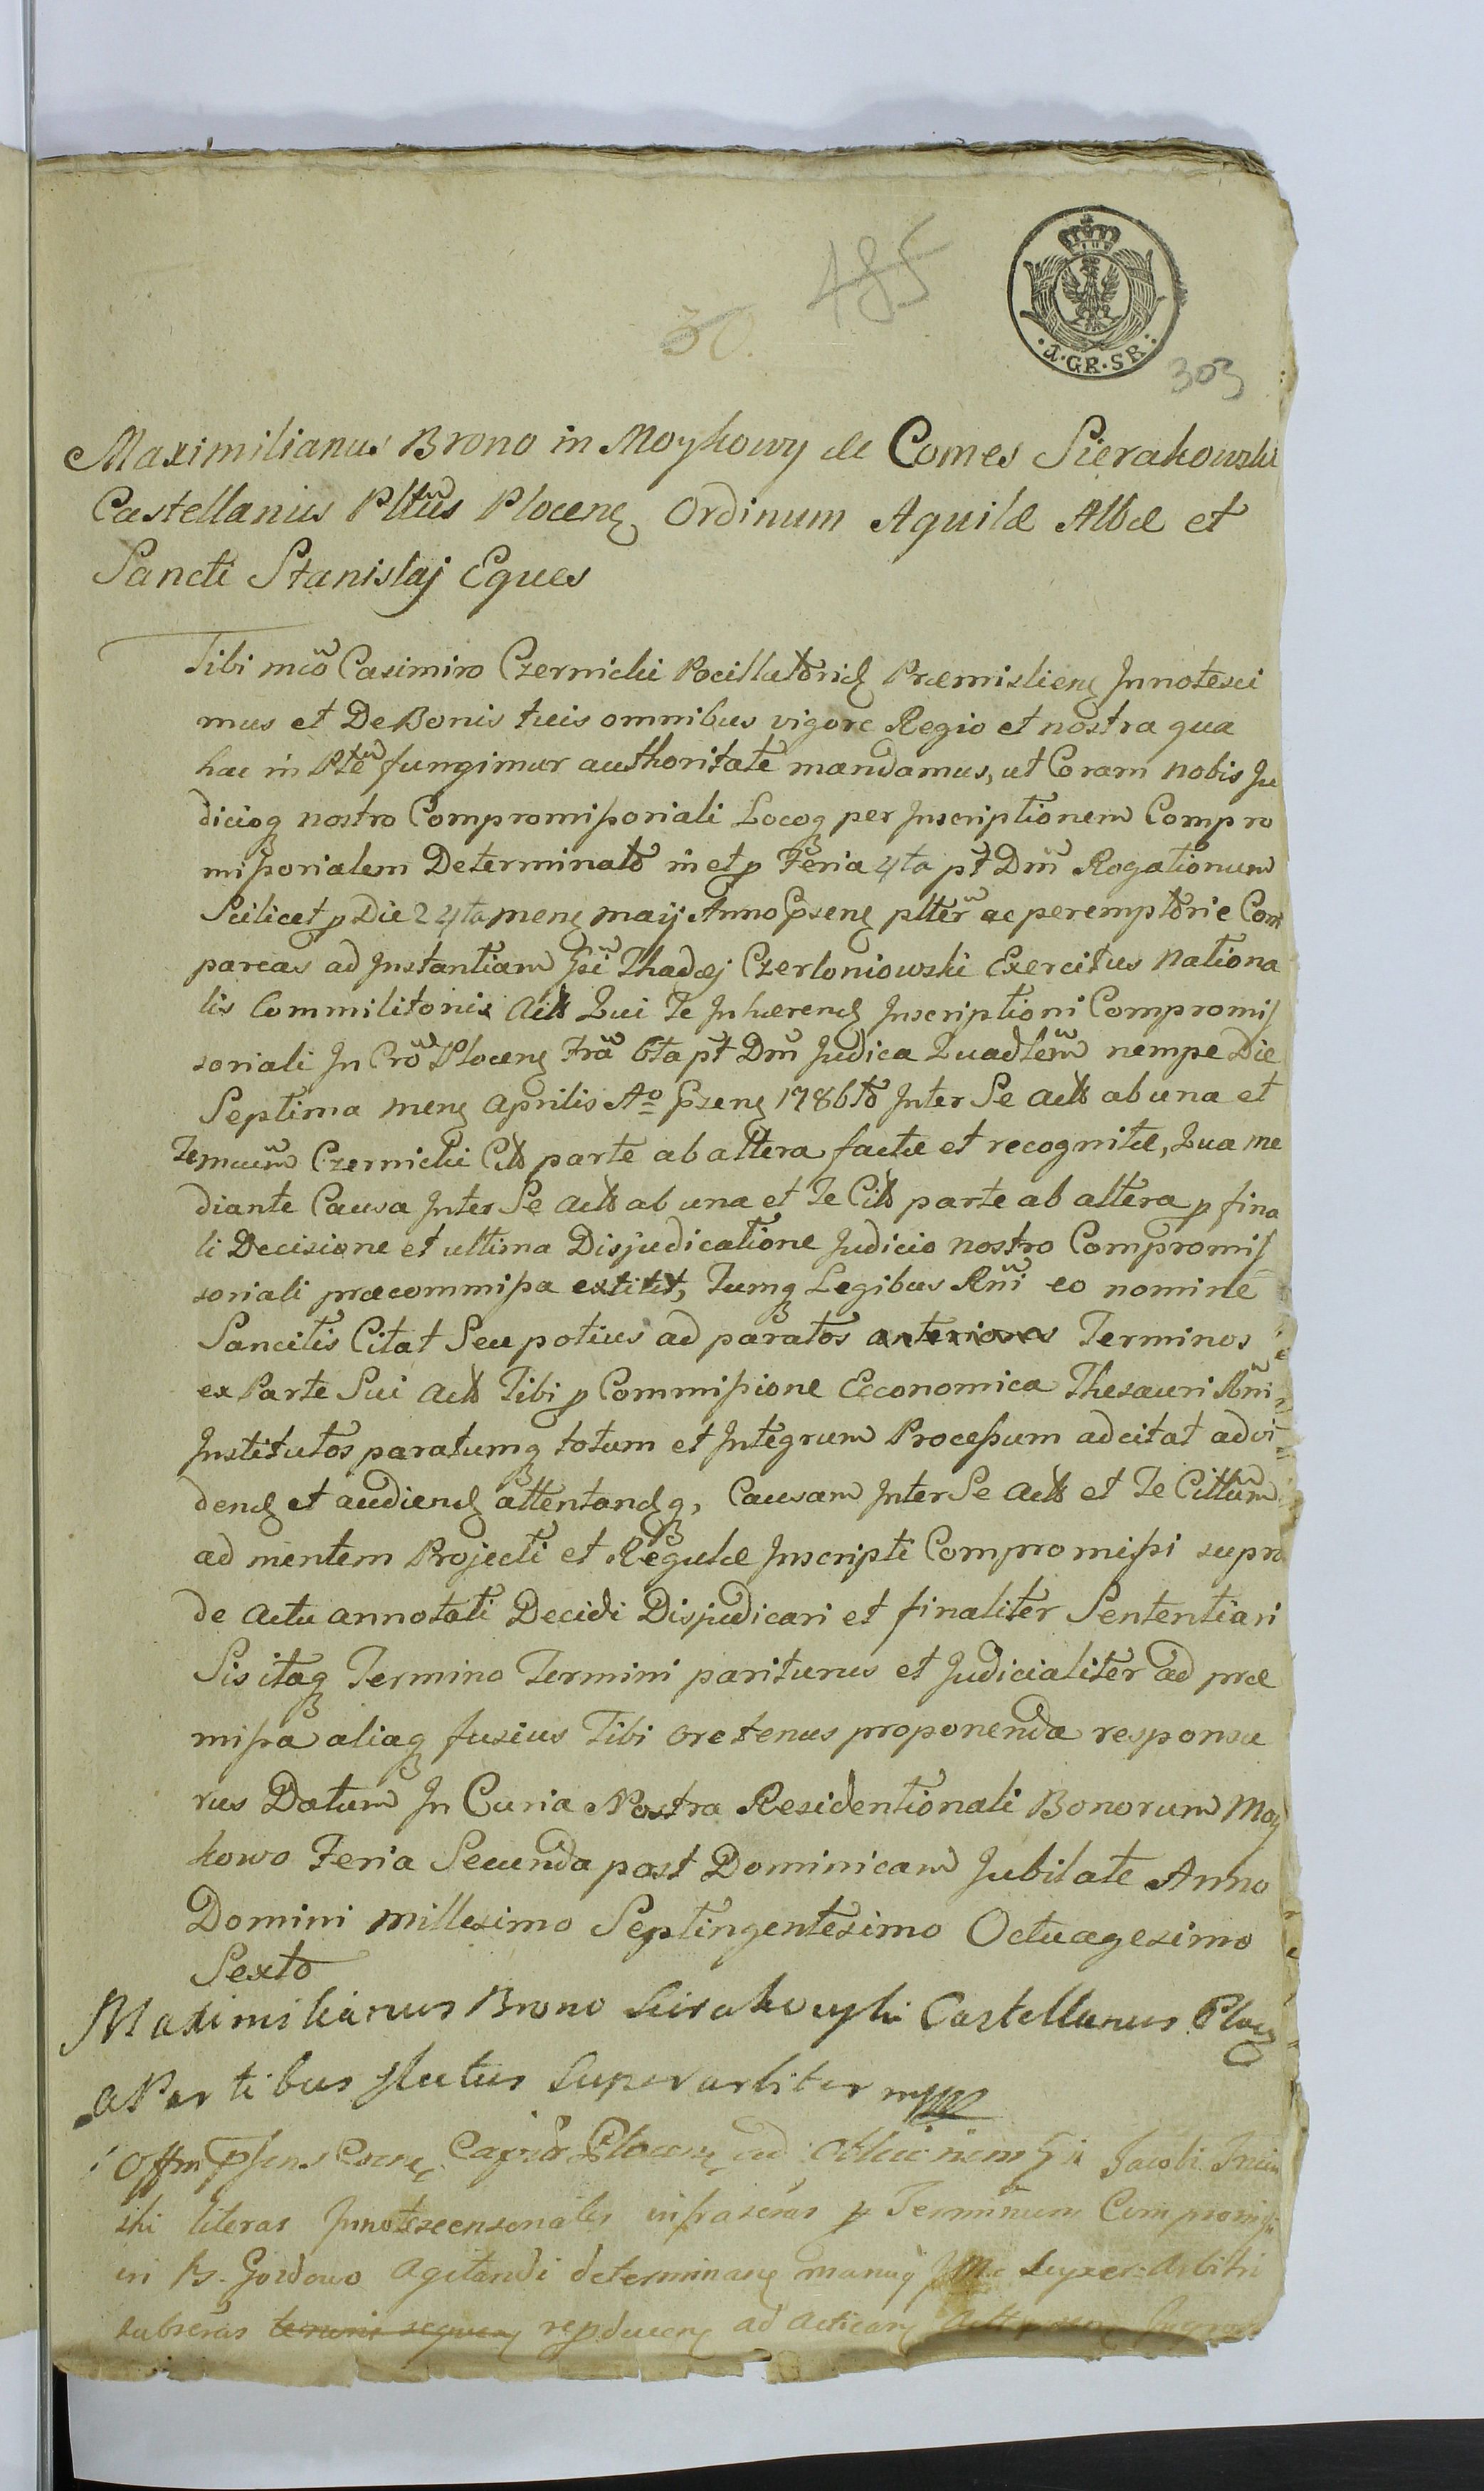 30.
485
1·GR·SR·
303
Maximilianus Brono in Moykowy de Comes Sierakowski
Castellanius Pltus Plocens Ordinum Aquilæ Albæ et
Sancti Stanislaj Eques
Tibi mco Casimiro Czernicki Pocillatorid Præmisliens Innotesci
mus et De Bonis tuis omnibus vigore Regio et nostra qua
hac in Pte fungimur authoritate mandamus, ut Coram nobis Ju
dicioq nostro Compromißoriali Locoq per Inscriptionem Compro
mißorialem Determinato in et p Feria 4ta pt Dm Rogationum
Scilicet p Die 24ta mens maij Anno Pzens plter ac peremptorie Com
pareas ad Instantiam Gsi Thadæj Czerloniowski Exercitus Nationa
lis Commilitonis Act Qui Te Inhærend Inscriptioni Compromis
soriali In Cro Plocens Fra 6ta pt Dm Judica Quadlem nempe Die
Septima mens Aprilis Ao Pzens 1786to Inter Se Act ab una et
Te mcum Czernicki Cit parte ab altera factæ et recognitæ, Qua me
diante Causa Inter Se Act ab una et Te Cit parte ab altera p fina
li Decisione et ultima Disjudicatione Judicio nostro Compromis
soriali præcommißa extitit, Tumq Legibus Rni eo nomine
Sancitis Citat Seu potius ad paratos anteriores Terminos
ex Parte Sui Act Tibi p Commißione Economica Thesauri Rni
Institutos paratumq totum et Integrum Proceßum adcitat ad vi
dend et audiend attentandq, Causam Inter Se Act et Te Cittum
ad mentem Projecti et Regulæ Inscripti Compromißi supra
de Actu annotati Decidi Disjudicari et finaliter Sententiari
Sis itaq Termino Termini pariturus et Judicialiter ad præ
mißa aliaq fusius Tibi oretenus proponenda responsu
rus Datum In Curia Nostra Residentionali Bonorum Moy
kowo Feria Secunda post Dominicam Jubilate Anno
Domini Millesimo Septingentesimo Octuagesimo
Sexto
Maximilianus Brono Sierakowski Castellanus Ploc
a Partibus Electus Superarbiter mpp
Offm Psens Capit Plocens ad Jacobi
ski literas Innotescensonales infrascras p Terminum Compromißi
in B. Gozdowo Agitandi determinans manuq Super-Arbitri
subscras tenoris sequens repducens ad acticans